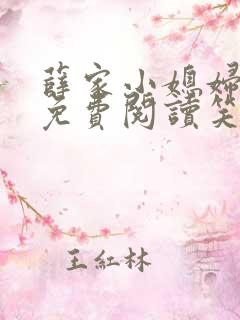 薛家小媳婦
免費閱讀笑
王紅林